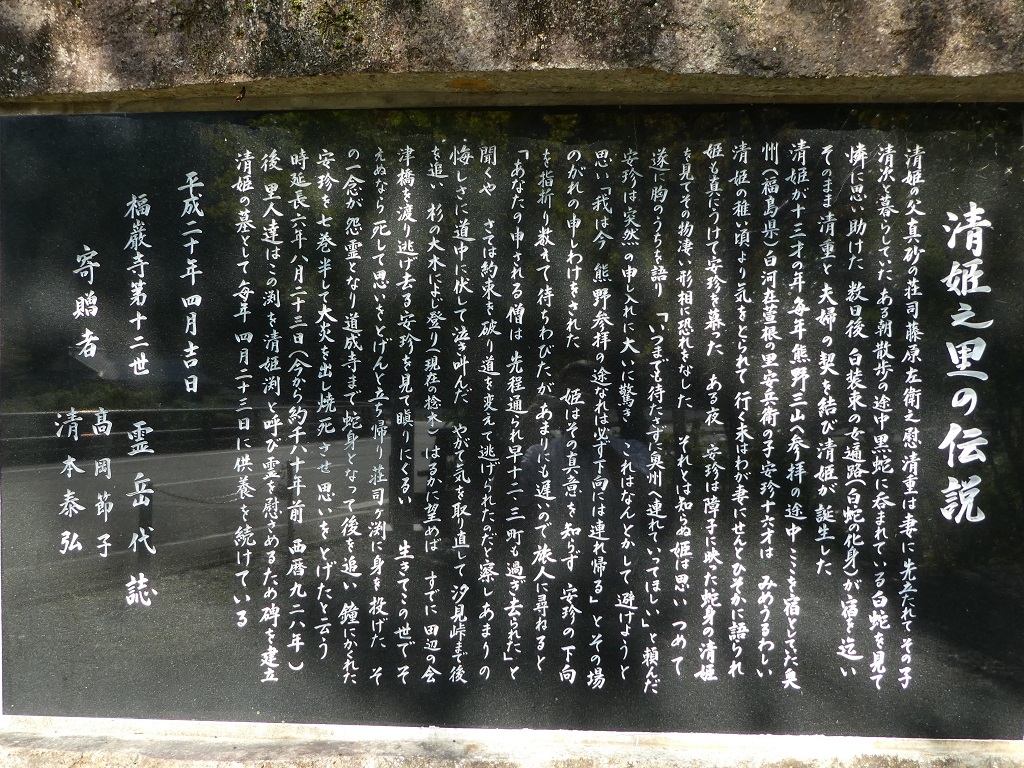 清姫之里の伝説
清姫の父真砂の荘司藤原左衛之慰清重は妻に先立たれてその子
清次と暮らしていた ある朝散歩の途中黒蛇に呑まれている白蛇を見て
憐に思い助けた 数日後 白装束の女遍路(白蛇化身)が宿を迄い
そのまま清重と夫婦の契を結び清姫が誕生した
清姫が十三才の年 毎年熊野三山へ参拝の途中ここを宿としていた奥
州(福島県)白河在萱根の里安兵衛の子安珍十六才は みめうるわしい
清姫の稚い頃より気をとられて 行く末はわが妻にせんとひそかに語られ
姫も真にうけて安珍を慕った ある夜 安珍は障子に映た蛇身の清姫
を見てその物凄い形相に恐れをなした それとは知らぬ姫は思いつめて
遂に胸のうちを語り 「いつまでも待たさず奥州へ連れていってほしい」と頼んだ
安珍は突然の申し入れに大いに驚き これはなんとかして避けようと
思い「我は今 熊野参拝の途なれば必ず下向には連れ帰る」とその場
のがれの申しわけをされた 姫はその真意を知らず 安珍の下向
を指折り数えて待ちわびたがあまりにも遅いので旅人に尋ねると
「あなたの申される僧は 先程通られ早十二、三町も過ぎ去られた」と
聞くや さては約束を破り道を変えて逃げられたのだと察しあまりの
悔しさに道中に伏して泣き叫んだ やがて気を取り直して汐見峠まで後
を追い 杉の大木によじ登り(現在の捻木)はるかに望めば すでに田辺の会
津橋を渡り逃げ去る安珍を見て瞋りにくるい 生きてこの世でそ
えぬなら死して思いをとげんと立ち帰り荘司ヶ渕に身を投げた そ
の一念が怨霊となり道成寺まで蛇身となって後を追い 鐘にかくれた
安珍を七巻半して大炎を出し焼死させ思いをとげたと云う
時延長六年八月二十三日(今から約千八十年前 西暦九二八年)
後 里人達はこの渕を清姫渕と呼び霊を慰さめるため碑を建立
清姫の墓として毎年 四月二十三日に供養を続けている
平成二十年四月吉日
福巌寺第十二世 霊岳代 誌
寄贈者 高岡節子
清本泰弘